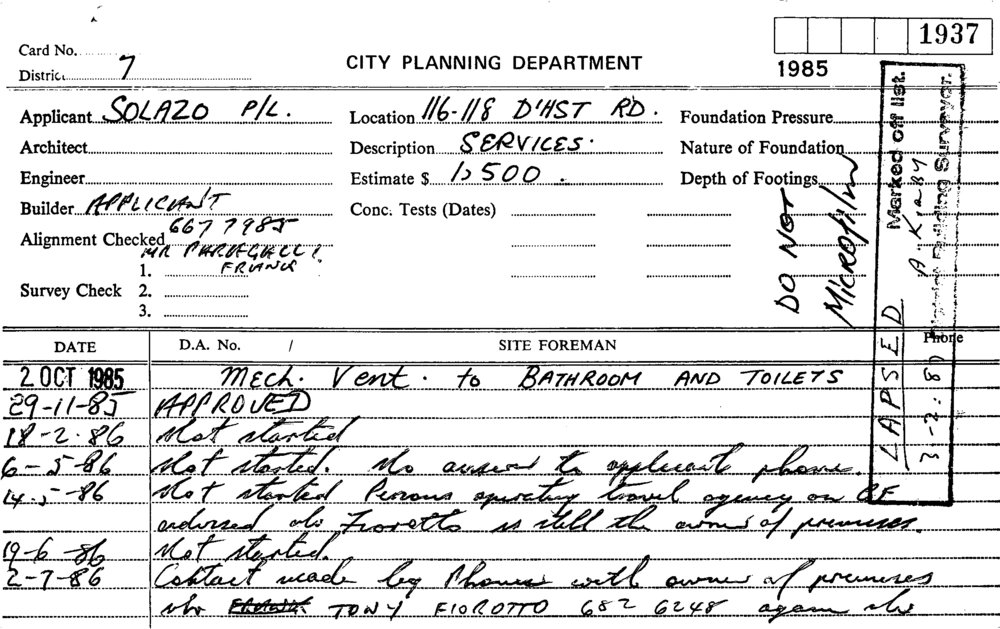 1937
Card No.
District 7
CITY PLANNING DEPARTMENT
1985
Applicant SOLAZO P/L.
Location 116-118 D'HST RD.
Foundation Pressure
Architect
Description SERVICES.
Nature of Foundation
Engineer
Estimate $ 1,500.
Depth of Footings
Builder APPLICIANT
Conc. Tests (Dates)
667 7985
Alignment Checked
MR
1. FRANK
Survey Check 2.
3.
DO NOT
Microfilm
Marked off list.
Building Surveyor.
LAPSED
DATE D.A. No. / SITE FOREMAN Phone
2 OCT 1985 Mech. Vent. to BATHROOM AND TOILETS
29-11-85 APPROVED
18-2-86 Not started
6-5-86 Not started. No answer to applicant phone.
14-5-86 Not started Persons operating travel agency on GF
endorsed Mr Fioretto is still the owner of premises.
19-6-86 Not started.
2-7-86 Contact made by Phone with owner of premises
Mr TONY FIOROTTO 682 6248 again